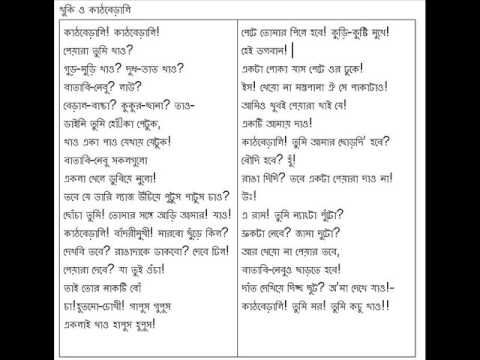 খুকি ও কাঠবেড়ালি
কাঠবেড়ালি! কাঠবেড়ালি!
পেয়ারা তুমি খাও?
গুড়-মুড়ি খাও? দুধ-ভাত খাও?
বাতাবি-নেবু? লাউ?
বেড়াল-বাচ্চা? কুকুর-ছানা? তাও-
ডাইনি তুমি হোঁৎকা পেটুক,
খাও একা পাও যেথায় যেটুক!
বাতাবি-নেবু সকলগুলো
একলা খেলে ডুবিয়ে নুলো!
তবে যে ভারি ল্যাজ উঁচিয়ে পুটুস পাটুস চাও?
ছোঁচা তুমি! তোমার সঙ্গে আড়ি আমার! যাও!
কাঠবেড়ালি! বাঁদরীমুখী! মারবো ছুঁড়ে কিল?
দেখবি তবে? রাঙাদাকে ডাকবো? দেবে ঢিল!
পেয়ারা দেবে? যা তুই ওঁচা!
তাই তোর নাকটি বোঁ
চা!হুতমো-চোখী! গাপুস গুপুস
একলাই খাও হাপুস হুপুস!
পেটে তোমার পিলে হবে! কুড়ি-কুষ্টি মুখে!
হেই ভগবান!
একটা পোকা যাস পেটে ওর ঢুকে!
ইস! খেয়ো না মস্তপানা ঐ সে পাকাটাও!
আমিও খুবই পেয়ারা খাই যে!
একটি আমায় দাও!
কাঠবেড়ালি! তুমি আমার ছোড়দি' হবে?
বৌদি হবে? হুঁ!
রাঙা দিদি? তবে একটা পেয়ারা দাও না!
উঃ!
এ রাম! তুমি ন্যাংটা পুঁটো?
ফ্রকটা নেবে? জামা দুটো?
আর খেয়ো না পেয়ার তবে,
বাতাবি-নেবুও ছাড়তে হবে!
দাঁত দেখিয়ে দিচ্ছ ছুট? অ'মা দেখে যাও!-
কাঠবেড়ালি! তুমি মর! তুমি কচু খাও!!